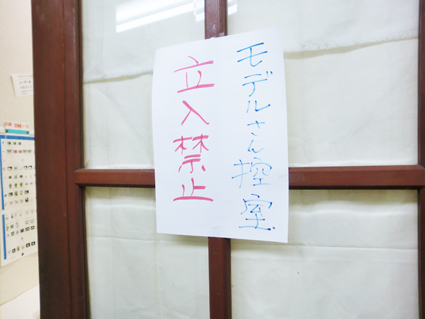 モデルさん控室
立入禁止